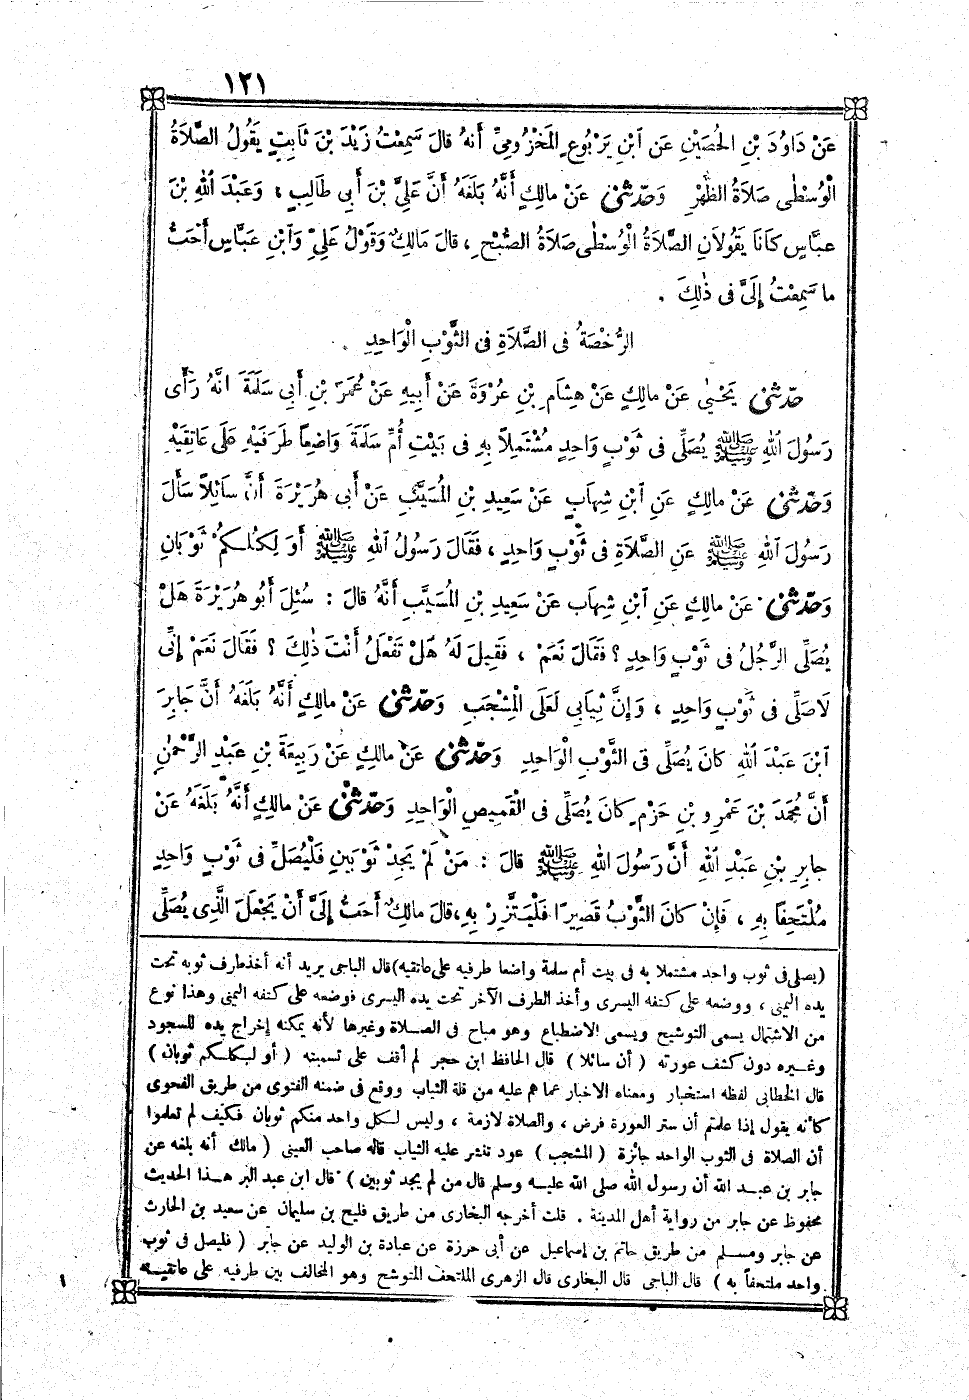 ١٢١
عَنْ دَاوُدَ بْنِ الْحُصَيْنِ عَنِ ابْنِ يَرْبُوعٍ الْمَخْزُومِيِّ أَنَّهُ قَالَ سَمِعْتُ زَيْدَ بْنَ ثَابِتٍ يَقُولُ الصَّلَاةُ
الْوُسْطٰى صَلَاةُ الظُّهْرِ وَحَدَّثَنِي عَنْ مَالِكٍ أَنَّهُ بَلَغَهُ أَنَّ عَلِيَّ بْنَ أَبِي طَالِبٍ ، وَعَبْدَ اللهِ بْنَ
عَبَّاسٍ كَانَا يَقُولَانِ الصَّلَاةُ الْوُسْطٰى صَلَاةُ الصُّبْحِ ، قَالَ مَالِكٌ وَقَوْلُ عَلِيٍّ وَابْنِ عَبَّاسٍ أَحَبُّ
مَا سَمِعْتُ إِلَيَّ فِي ذٰلِكَ .
الرُّخْصَةُ فِي الصَّلَاةِ فِي الثَّوْبِ الْوَاحِدِ
حَدَّثَنِي يَحْيٰى عَنْ مَالِكٍ عَنْ هِشَامِ بْنِ عُرْوَةَ عَنْ أَبِيهِ عَنْ عُمَرَ بْنِ أَبِي سَلَمَةَ انَّهُ رَأَى
رَسُولَ اللهِ ﷺ يُصَلِّي فِي ثَوْبٍ وَاحِدٍ مُشْتَمِلاً بِهِ فِي بَيْتِ أُمِّ سَلَمَةَ وَاضِعاً طَرَفَيْهِ عَلَى عَاتِقَيْهِ
وَحَدَّثَنِي عَنْ مَالِكٍ عَنِ ابْنِ شِهَابٍ عَنْ سَعِيدِ بْنِ الْمُسَيَّبِ عَنْ أَبِي هُرَيْرَةَ أَنَّ سَائِلاً سَأَلَ
رَسُولَ اللهِ ﷺ عَنِ الصَّلَاةِ فِي ثَوْبٍ وَاحِدٍ ، فَقَالَ رَسُولُ اللهِ ﷺ أَوَ لِكُلِّكُمْ ثَوْبَانِ
وَحَدَّثَنِي عَنْ مَالِكٍ عَنِ ابْنِ شِهَابٍ عَنْ سَعِيدِ بْنِ الْمُسَيَّبِ أَنَّهُ قَالَ : سُئِلَ أَبُو هُرَيْرَةَ هَلْ
يُصَلِّي الرَّجُلُ فِي ثَوْبٍ وَاحِدٍ ؟ فَقَالَ نَعَمْ ، فَقِيلَ لَهُ هَلْ تَفْعَلُ أَنْتَ ذٰلِكَ ؟ فَقَالَ نَعَمْ إِنِّي
لَاصَلِّي فِي ثَوْبٍ وَاحِدٍ ، وَإِنَّ ثِيَابِي لَعَلَى الْمِشْجَبِ وَحَدَّثَنِي عَنْ مَالِكٍ أَنَّهُ بَلَغَهُ أَنَّ جَابِرَ
ابْنَ عَبْدَ اللهِ كَانَ يُصَلِّي فِي الثَّوْبِ الْوَاحِدِ وَحَدَّثَنِي عَنْ مَالِكٍ عَنْ رَبِيعَةَ بْنِ عَبْدِ الرَّحْمٰنِ
أَنَّ مُحَمَّدَ بْنَ عَمْرِو بْنِ حَزْمٍ كَانَ يُصَلِّي فِي الْقَمِيصِ الْوَاحِدِ وَحَدَّثَنِي عَنْ مَالِكٍ أَنَّهُ بَلَغَهُ عَنْ
جَابِرِ بْنِ عَبْدِ اللهِ أَنَّ رَسُولَ اللهِ ﷺ قَالَ : مَنْ لَمْ يَجِدْ ثَوْبَيْنِ فَلْيُصَلِّ فِي ثَوْبٍ وَاحِدٍ
مُلْتَحِفًا بِهِ ، فَإِنْ كَانَ الثَّوْبُ قَصِيرًا فَلْيَتَّزِرْ بِهِ ، قَالَ مَالِكٌ أَحَبُّ إِلَيَّ أَنْ يَجْعَلَ الَّذِي يُصَلِّي
(يصلى فى ثوب واحد مشتملا به فى بيت أم سلمة واضعا طرفيه على عاتقيه) قال الباجى يريد أنه أخذ طرف ثوبه تحت
يده اليمنى ، ووضعه على كتفه اليسرى وأخذ الطرف الآخر تحت يده اليسرى فوضعه على كتفه اليمنى وهذا نوع
من الاشتمال يسمى التوشيح ويسمى الاضطباع وهو مباح فى الصلاة وغيرها لأنه يمكنه إخراج يده للسجود
وغيره دون كشف عورته ( أن سائلا ) قال الحافظ ابن حجر لم أقف على تسميته ( أو لكلكم ثوبان )
قال الخطابى لفظه استخبار ومعناه الاخبار عما هم عليه من قلة الثياب ووقع فى ضمنه الفتوى من طريق الفحوى
كأنه يقول إذا علمتم أن ستر العورة فرض ، والصلاة لازمة ، وليس لكل واحد منكم ثوبان فكيف لم تعلموا
أن الصلاة فى الثوب الواحد جائزة ( المشجب ) عود تنشر عليه الثياب قاله صاحب العينى ( مالك أنه بلغه عن
جابر بن عبد الله أن رسول الله صلى الله عليه وسلم قال من لم يجد ثوبين ) قال ابن عبد البر هذا الحديث
محفوظ عن جابر من رواية أهل المدينة . قلت أخرجه البخارى من طريق فليح بن سليمان عن سعيد بن الحارث
عن جابر ومسلم من طريق حاتم بن إسماعيل عن أبى حرزة عن عبادة بن الوليد عن جابر ( فليصل فى ثوب
واحد ملتحفاً به ) قال الباجى قال البخارى قال الزهرى الملتحف المتوشح وهو المخالف بين طرفيه على عاتقيه